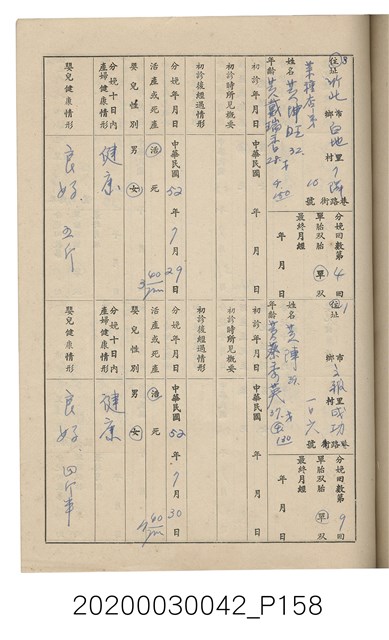 住址 竹北 鄉市 白地 村里 鄰 街路巷 號
業種
姓名 黃坤旺 32
年齡 黃戴瑞香 28 才
分娩回數第 4 回
單胎双胎 單
最終月經 年 月 日
初診年月日 年 月 日
初診時所見概要
初診後經過情形
分娩年月日 中華民國 52 年 7 月 29 日
活產或死產 活 死
嬰兒性別 男 女
分娩十日內產婦健康情形 健康
嬰兒健康情形 良好 五斤
住址 鄉市 村里 成功 街路巷 一〇六 號
姓名 黃陣 39
年齡 黃蔡秀英 37 才
分娩回數第 9 回
單胎双胎 單
最終月經 年 月 日
初診年月日 年 月 日
初診時所見概要
初診後經過情形
分娩年月日 中華民國 52 年 7 月 30 日
活產或死產 活 死
嬰兒性別 男 女
分娩十日內產婦健康情形 健康
嬰兒健康情形 良好 四斤半
20200030042_P158